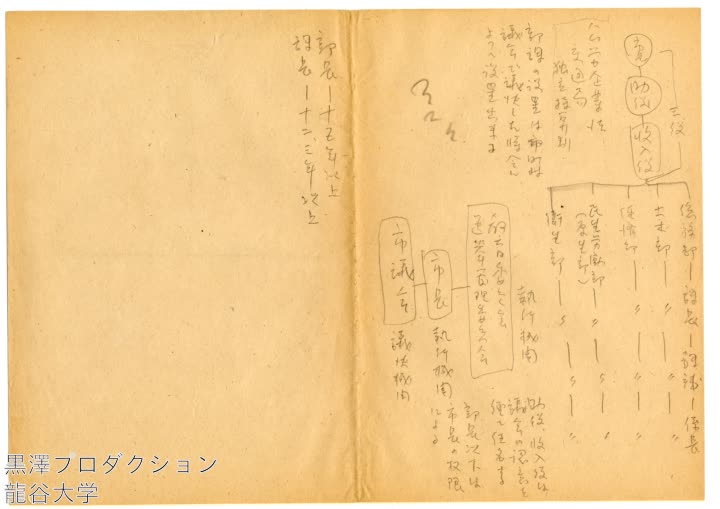 市長
助役
収入役
三役
総務部―課長―課補―係長
土木部―〃―〃―〃
経済部―〃―〃―〃
民生労働部―〃―〃―〃
(厚生部)
衛生部―〃―〃―〃
公共企業体
交通局
独立採算制
部課の設置は市町村
議会で議決した時会し
よって設置出来る
執行機関
教育委員会
選挙管理委員会
市長 執行機関
市議会 議決機関
助役、収入役は
議会の認意を
経て任命する
部長以下は
市長の权限
による
部長―十五年以上
課長―十二、三年以上
黒澤プロダクション
龍谷大学